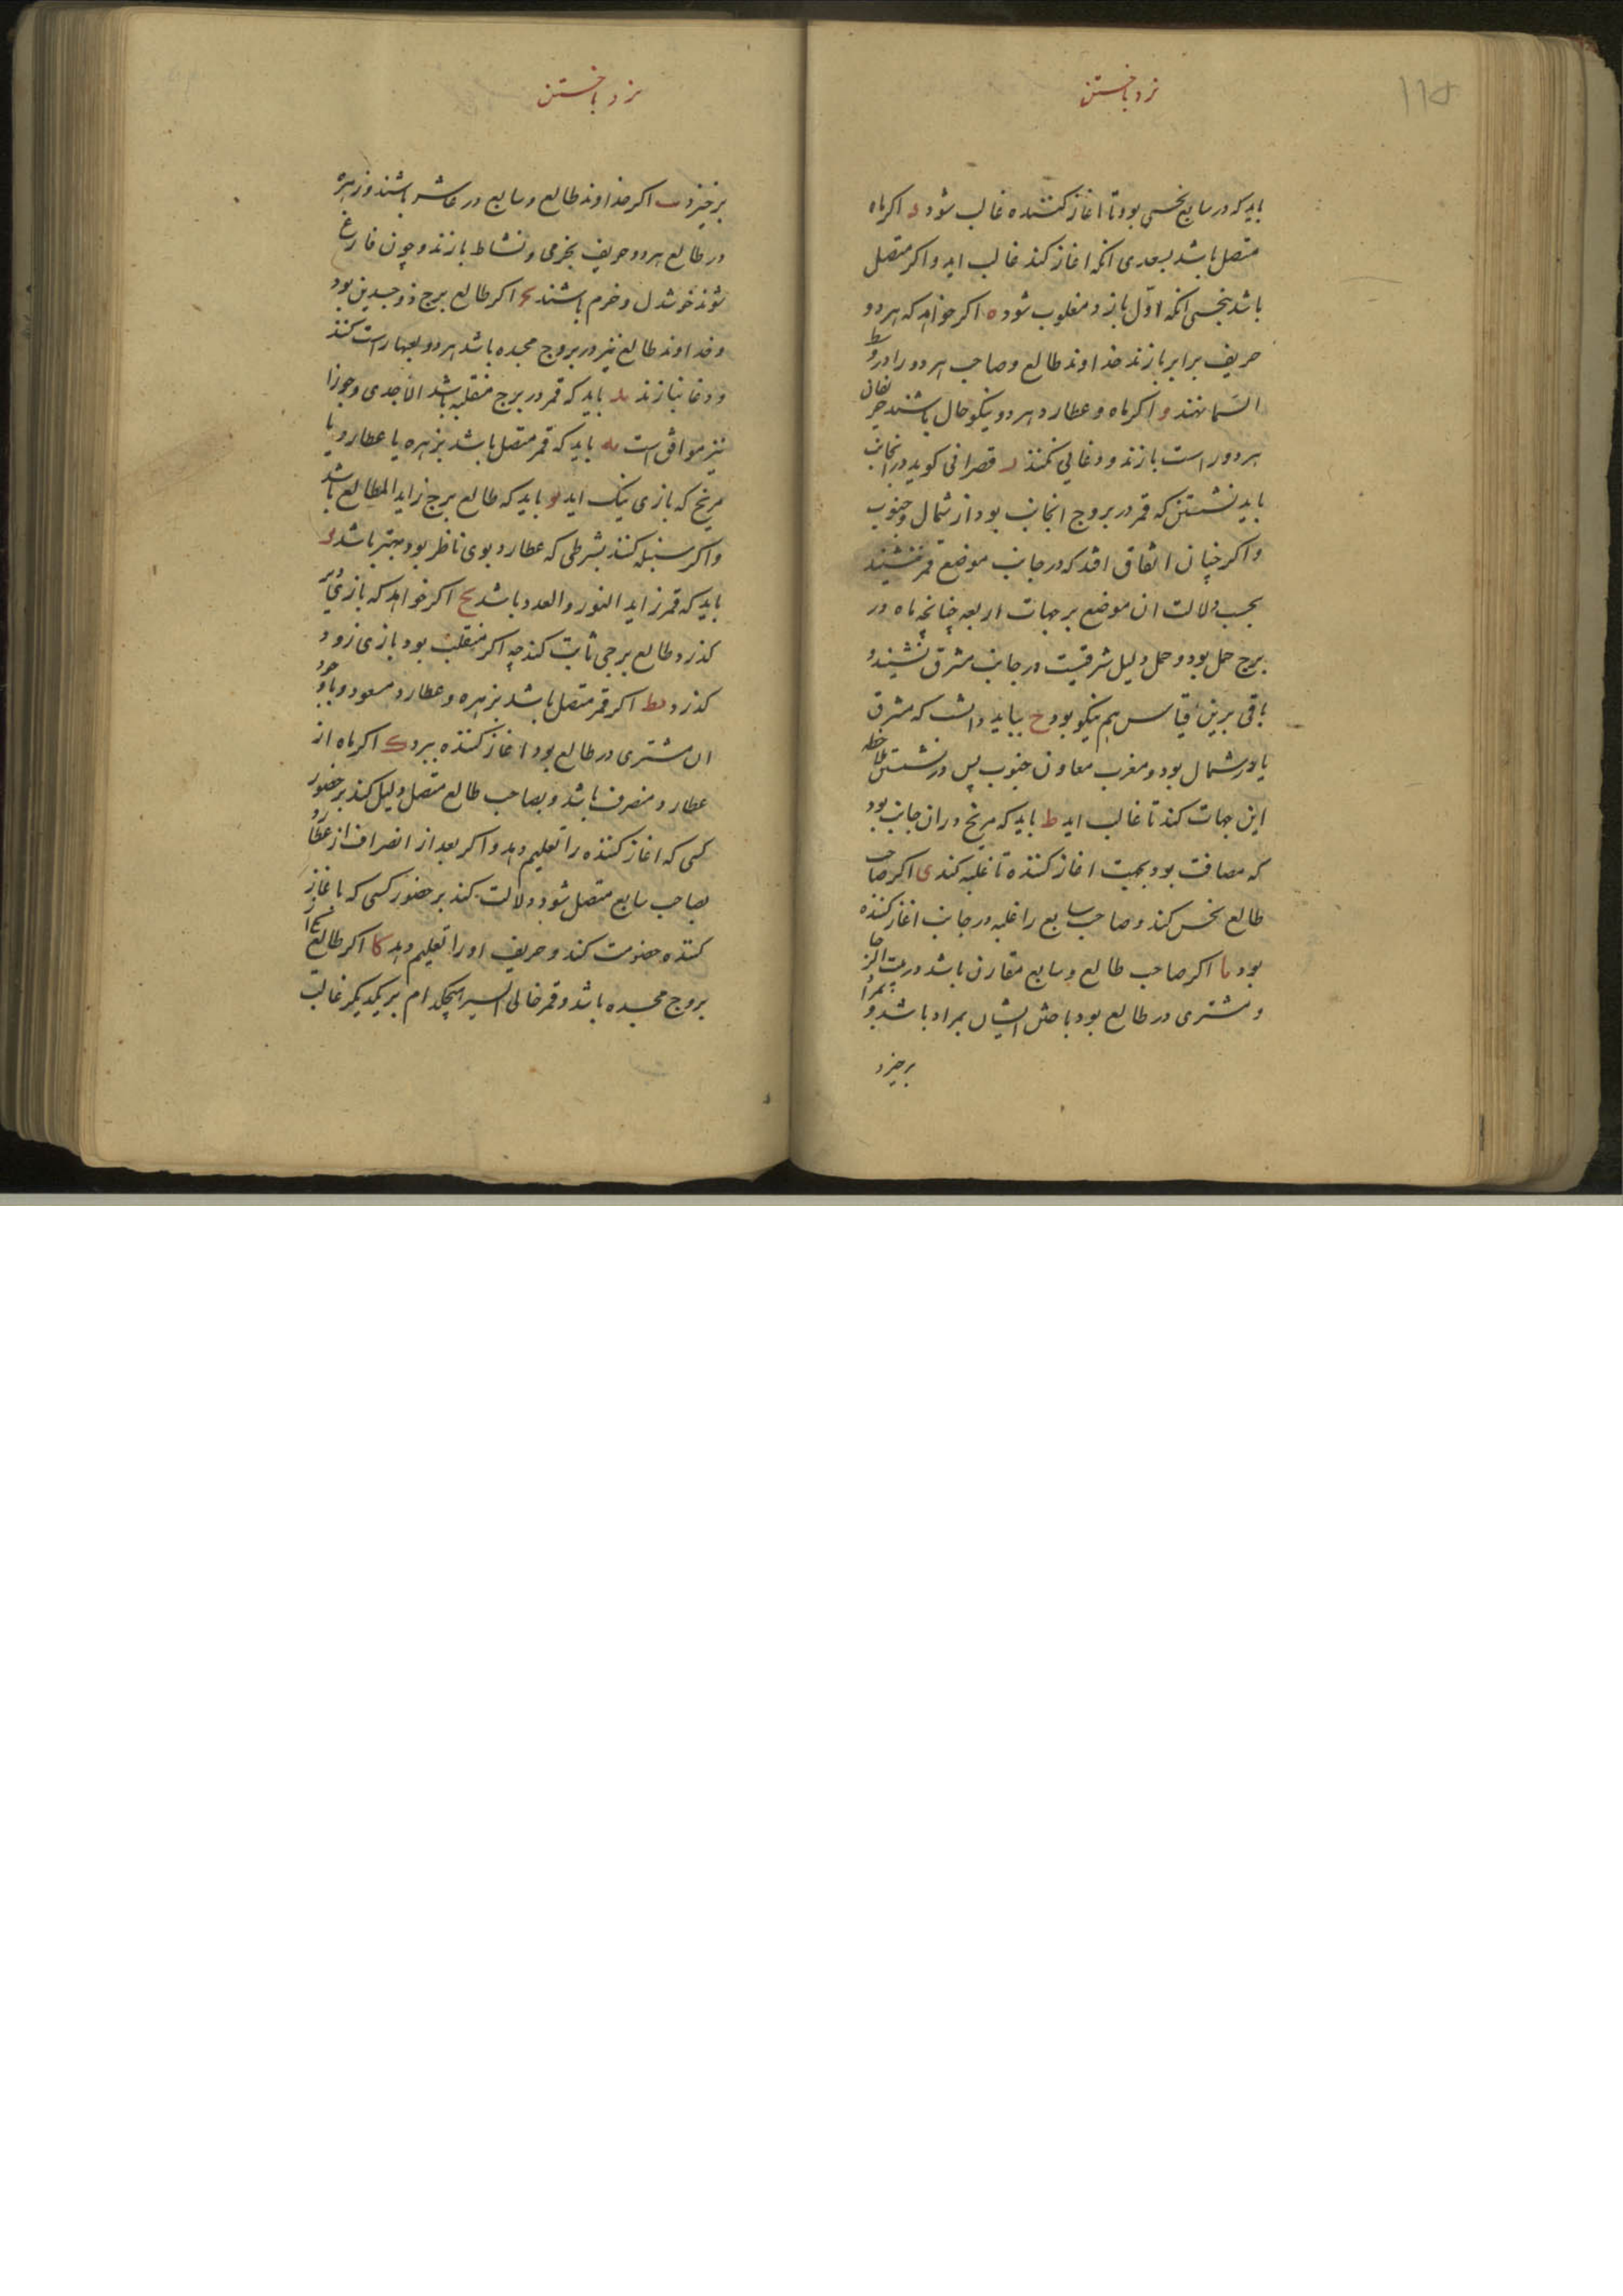 ۱۱۵
نرد باختن
باید که در سابع نحسی بود تا اغاز کننده غالب شود د اکر ماه
متصل باشد بسعدی انکه اغاز کند غالب اید و اکر متصل
باشد بنحسی انکه اول بازد مغلوب شود ه اکر خواهد که هر دو
حریف برابر بازند خداوند طالع و صاحب هر دو را در وسط
السما نهند و اکر ماه و عطارد هر دو نیکو حال باشند حریفان
هر دو راست بازند و دغایی نکنند ز قصرانی کوید در انجانب
باید نشستن که قمر در بروج انجانب بود از شمال و جنوب
و اکر چنان اتفاق افتد که در جانب موضع قمر نشیند
بحسب دلالت ان موضع بر جهات اربعه چنانچه ماه در
برج حمل بود و حمل دلیل شرقیست در جانب مشرق نشیند و
باقی برین قیاس هم نیکو بود ح بباید دانست که مشرق
یاور شمال بود و مغرب معاون جنوب پس در نشستن ملاحظه
این جهات کند تا غالب اید ط باید که مریخ در ان جانب بود
که مصافت بود بجهت اغاز کننده تا غلبه کند ی اکر صاحب
طالع نحس کند و صاحب سابع را غلبه در جانب اغاز کننده
بود یا اکر صاحب طالع و سابع مقارن باشد در بیت المرکز
و مشتری در طالع بود باختن ایشان بمراد باشد و بمراد
برخیزد
نرد باختن
برخیزد یب اکر خداوند طالع و سابع در عاشر باشند و زهره
در طالع هر دو حریف بخرمی و نشاط بازند و چون فارغ
شوند خوشدل و خرم باشند یج اکر طالع برج ذوجسدین بود
و خداوند طالع نیز در بروج مجسده باشد هر دو لعبها راست کنند
و دغا نبازند ید باید که قمر در برج منقلبه باشد الا جدی و جوزا
نیز موافق است یه باید که قمر متصل باشد بزهره یا عطارد یا
مریخ که بازی نیک اید یو باید که طالع برج زاید المطالع باشد
و اکر سنبله کنند بشرطی که عطارد بوی ناظر بود بهتر باشد یز
باید که قمر زاید النور و العدد باشد یح اکر خواهد که بازی دیر
کذرد طالع برجی ثابت کند چه اکر منقلب بود بازی زود
کذرد یط اکر قمر متصل باشد بزهره و عطارد مسعود و با وجود
ان مشتری در طالع بود اغاز کننده ببرد ک اکر ماه از
عطارد منصرف باشد و بصاحب طالع متصل دلیل کند بر حضور
کسی که اغاز کننده را تعلیم دهد و اکر بعد از انصراف از عطارد
بصاحب سابع متصل شود دلالت کند بر حضور کسی که با غاز
کننده خصومت کند و حریف او را تعلیم دهد کا اکر طالع از
بروج مجسده باشد و قمر خالی السیر هیچکدام بر یکدیکر غالب